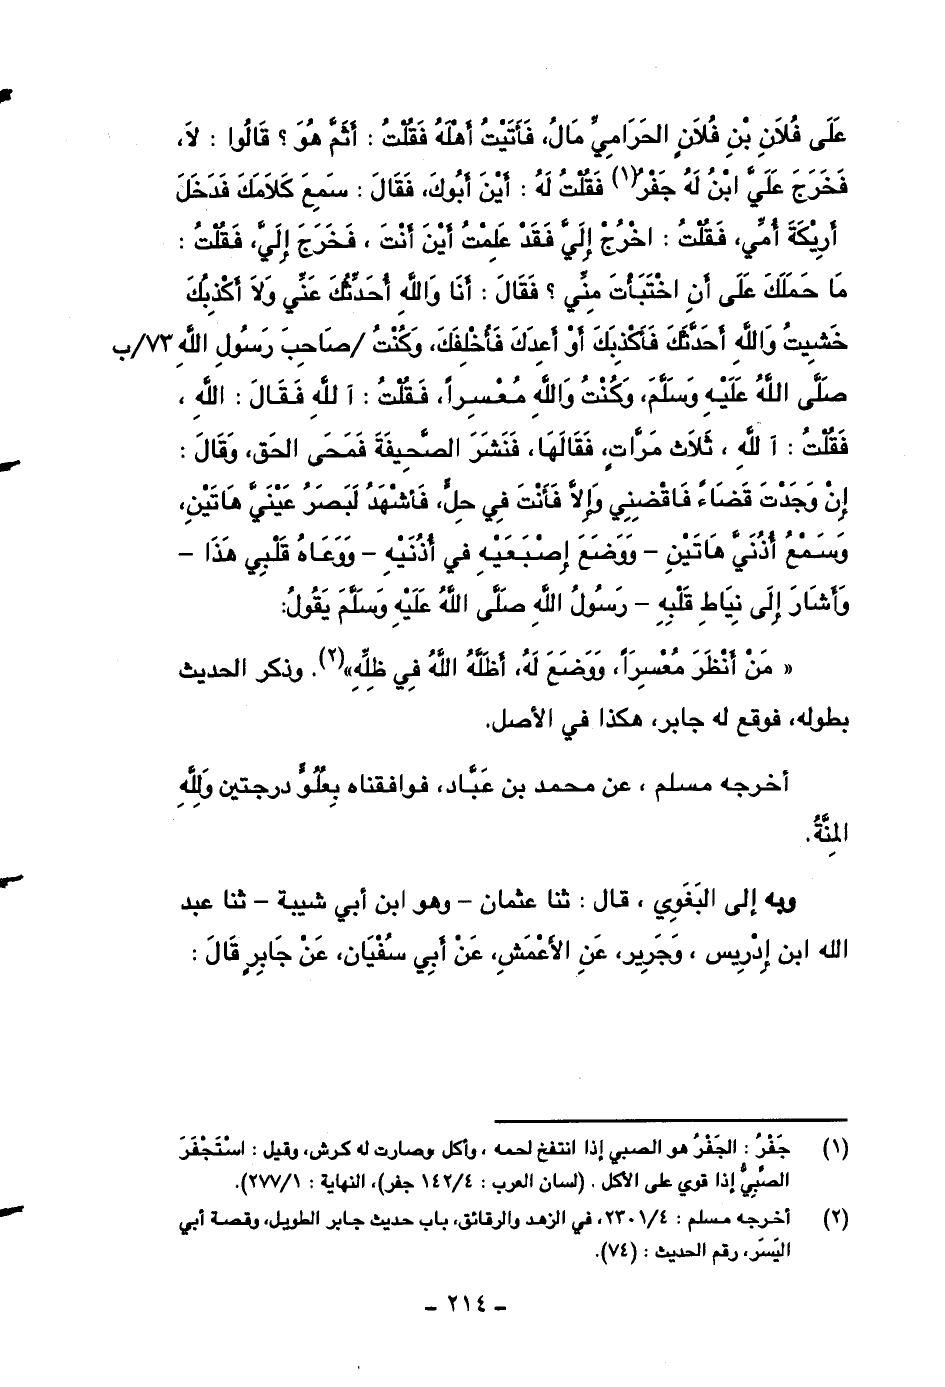 عَلَى فُلَانِ بْنِ فُلَانٍ الحَرَامِيِّ مَالٌ، فَأَتَيْتُ أَهْلَهُ فَقُلْتُ : أَثَمَّ هُوَ ؟ قَالُوا : لاَ،
فَخَرَجَ عَلَيَّ ابْنٌ لَهُ جَفْرٌ(١) فَقُلْتُ لَهُ : أَيْنَ أَبُوكَ، فَقَالَ : سَمِعَ كَلَامَكَ فَدَخَلَ
أَرِيْكَةَ أُمِّي، فَقُلْتُ : اخْرُجْ إِلَيَّ فَقَدْ عَلِمْتُ أَيْنَ أَنْتَ ، فَخَرَجَ إِلَيَّ، فَقُلْتُ :
مَا حَمَلَكَ عَلَى أَنِ اخْتَبَأْتَ مِنِّي ؟ فَقَالَ : أَنَا وَاللَّهِ أُحَدِّثُكَ عَنِّي وَلاَ أَكْذِبُكَ
خَشِيتُ وَاللَّهِ أُحَدِّثَكَ فَأَكْذِبَكَ أَوْ أَعِدَكَ فَأُخْلِفَكَ، وَكُنْتُ /صَاحِبَ رَسُولِ اللَّهِ ٧٣/ب
صَلَّى اللَّهُ عَلَيْهِ وَسَلَّمَ، وَكُنْتُ وَاللَّهِ مُعْسِراً، فَقُلْتُ : آ للَّهِ فَقَالَ : اللَّهِ ،
فَقُلْتُ : آ للَّهِ ، ثَلَاثَ مَرَّاتٍ، فَقَالَهَا، فَنَشَرَ الصَّحِيفَةَ فَمَحَى الحَق، وَقَالَ :
إِنْ وَجَدْتَ قَضَاءً فَاقْضِنِي وَإِلاَّ فَأَنْتَ فِي حِلٍّ، فَأَشْهَدُ لَبَصَرُ عَيْنَيَّ هَاتَيْنِ،
وَسَمْعُ أُذُنَيَّ هَاتَيْنِ – وَوَضَعَ إِصْبَعَيْهِ فِي أُذُنَيْهِ – وَوَعَاهُ قَلْبِي هَذَا –
وَأَشَارَ إِلَى نِيَاطِ قَلْبِهِ – رَسُولُ اللَّهِ صَلَّى اللَّهُ عَلَيْهِ وَسَلَّمَ يَقُولُ:
« مَنْ أَنْظَرَ مُعْسِرَاً، وَوَضَعَ لَهُ، أَظَلَّهُ اللَّهُ فِي ظِلِّهِ»(٢). وذكر الحديث
بطوله، فوقع له جابر، هكذا في الأصل.
أخرجه مسلم ، عن محمد بن عَبَّاد، فوافقناه بِعُلُوٍّ درجتين وَلِلَّهِ
المِنَّةُ.
وبه إلى البَغَوِي ، قال : ثنا عثمان – وهو ابن أبي شيبة – ثنا عبد
الله ابن إِدْرِيس ، وَجَرِير، عَنِ الأَعْمَشِ، عَنْ أَبِي سُفْيَان، عَنْ جَابِرٍ قَالَ :
(١) جَفْرٌ : الجَفْرُ هو الصبي إذا انتفخ لحمه ، وأكل وصارت له كرش، وقيل : اسْتَجْفَرَ
الصَّبِيُّ إذا قوي على الأكل . (لسان العرب : ١٤٢/٤ جفر)، النهاية : ٢٧٧/١).
(٢) أخرجه مسلم : ٢٣٠١/٤، في الزهد والرقائق، باب حديث جابر الطويل، وقصة أبي
اليَسَر، رقم الحديث : (٧٤).
– ٢١٤ –